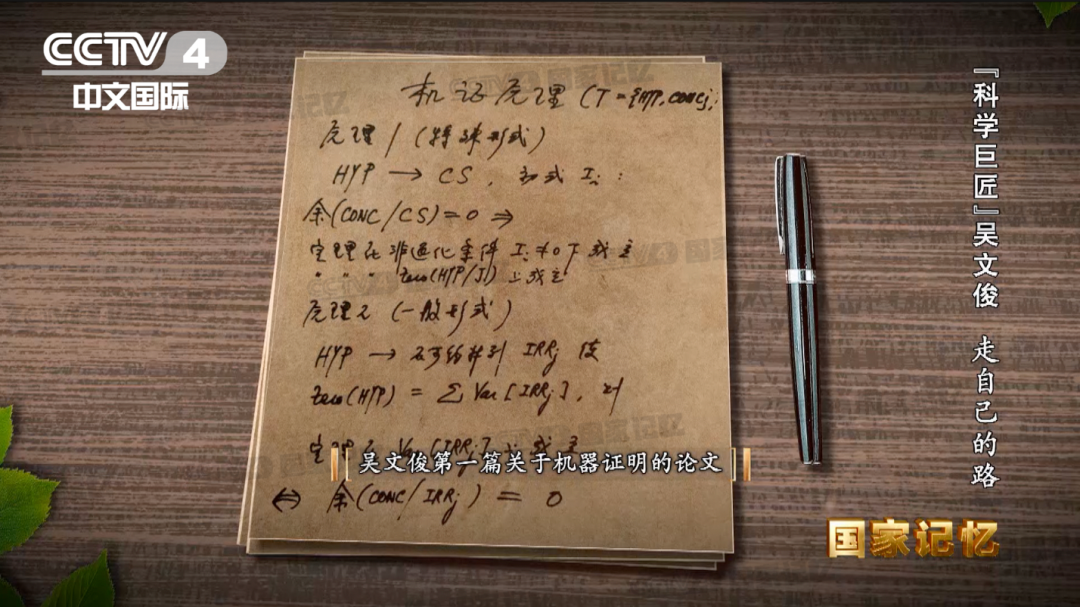 CCTV 4
中文国际
机证原理 (T = {HYP, CONC},
原理1 (特殊形式)
HYP → CS, 初式 Iᵢ :
余(CONC/CS)=0 ⇒
定理在非退化条件 Iᵢ≠0 下成立
" " " Zero(HYP/J) 上成立
原理2 (一般形式)
HYP → 不可约升列 IRRⱼ 使
Zero(HYP) = Σ Var[IRRⱼ], 则
定理在 Var[IRRⱼ] 上成立
⇔ 余(CONC/IRRⱼ) = 0
吴文俊第一篇关于机器证明的论文
『科学巨匠』吴文俊 走自己的路
国家记忆